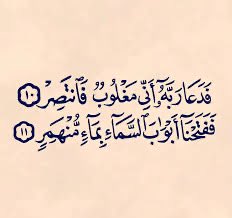 فَدَعَا رَبَّهُۥٓ أَنِّى مَغْلُوبٌ فَٱنتَصِرْ ١٠
فَفَتَحْنَآ أَبْوَٰبَ ٱلسَّمَآءِ بِمَآءٍ مُّنْهَمِرٍ ١١